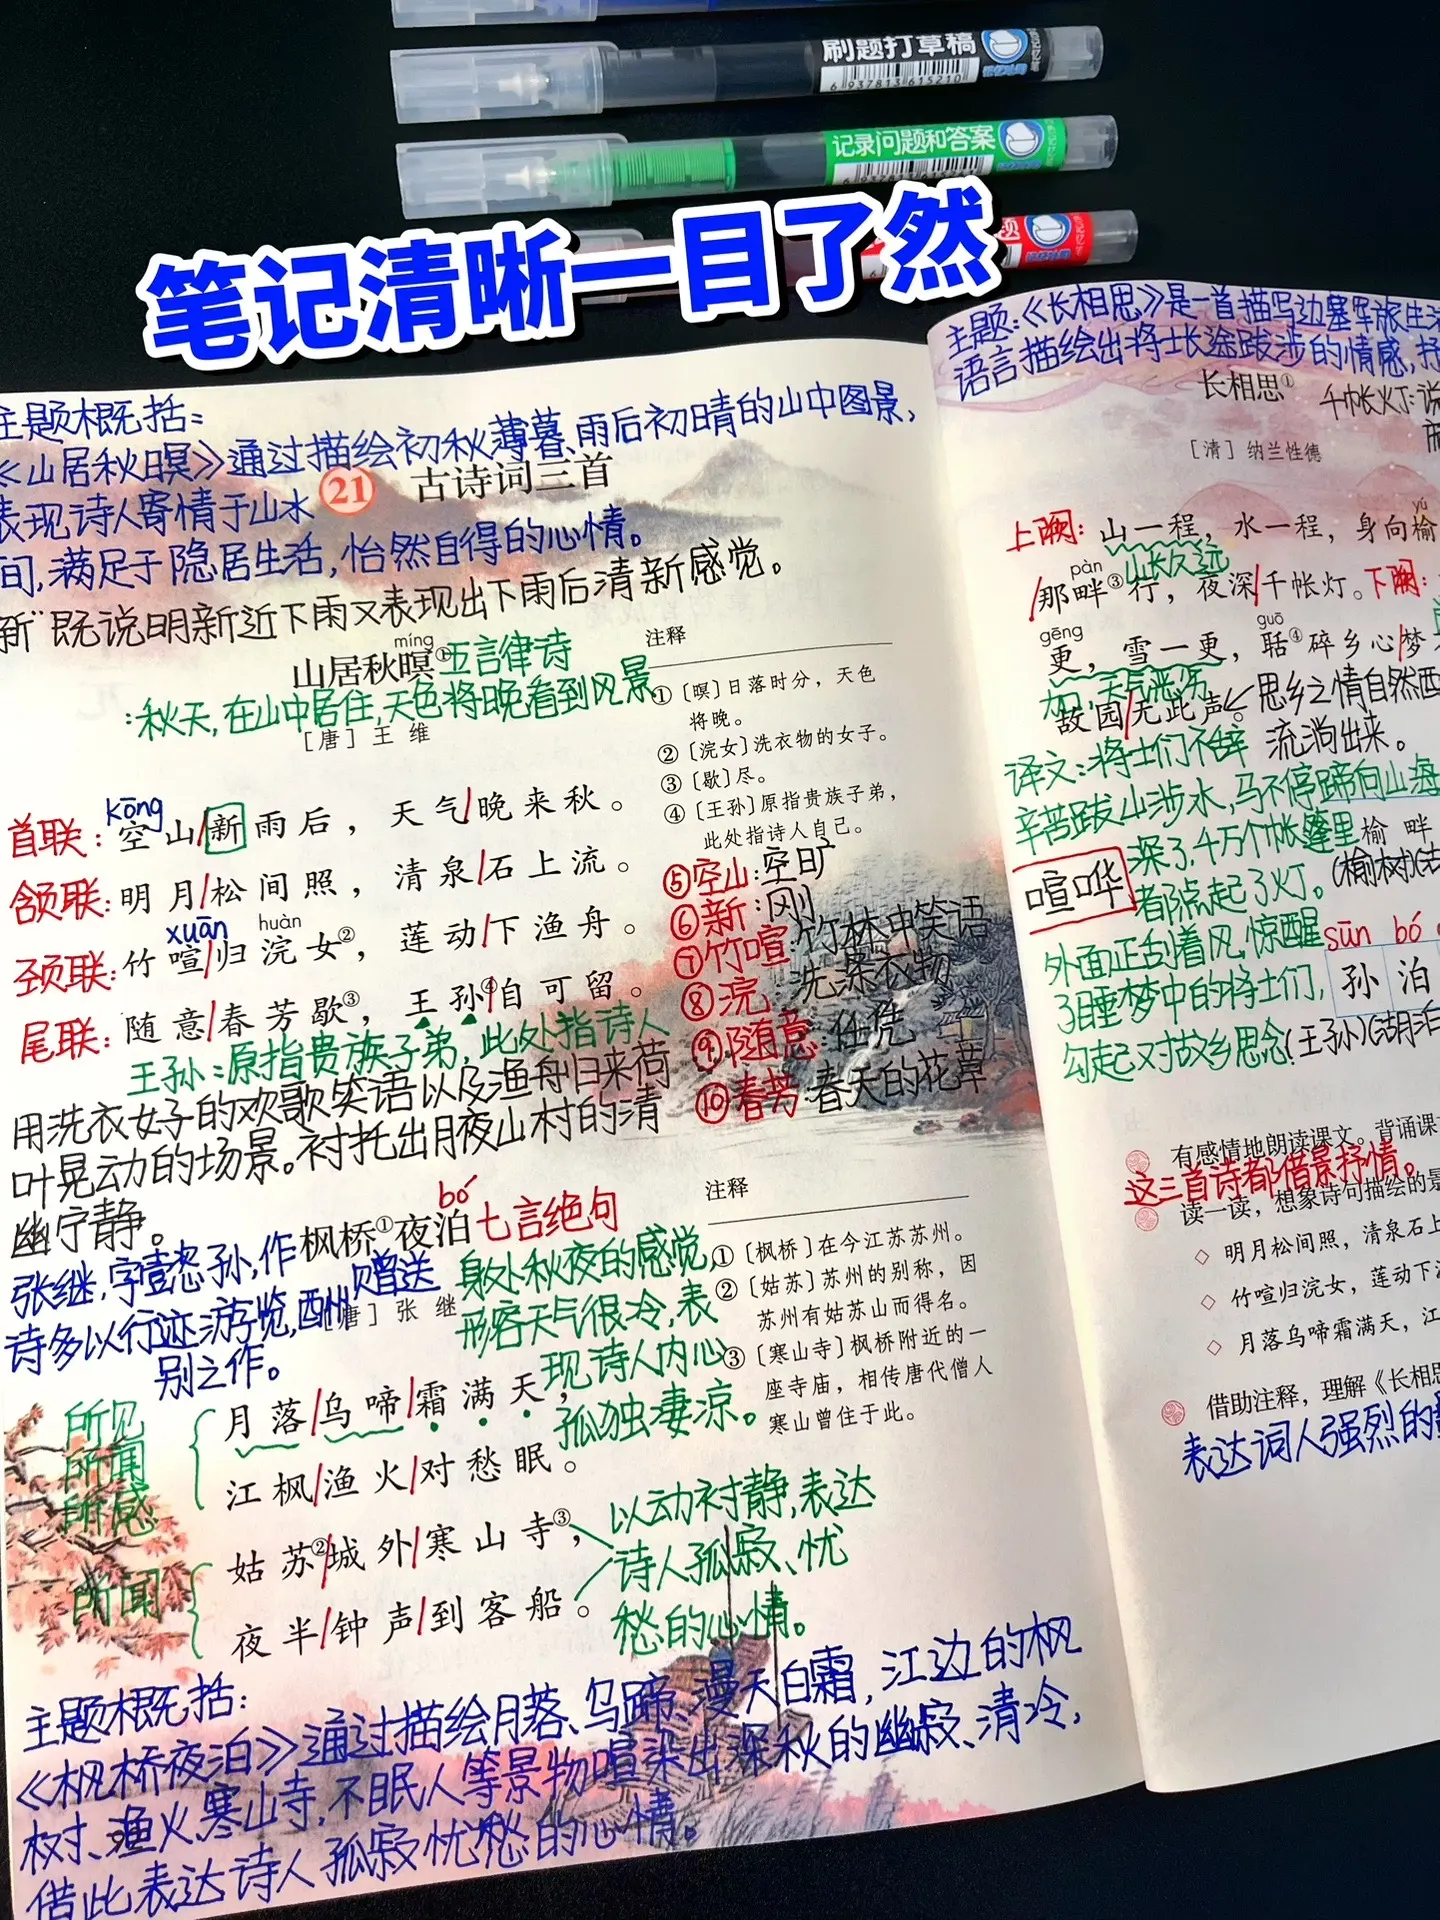 刷题打草稿
6 937813 615210
记录问题和答案
笔记清晰一目了然
主题概括:
《山居秋暝》通过描绘初秋薄暮、雨后初晴的山中图景,
表现诗人寄情于山水
21 古诗词三首
间,满足于隐居生活,怡然自得的心情。
新"既说明新近下雨又表现出下雨后清新感觉。
míng
山居秋暝① 五言律诗
:秋天,在山中居住,天色将晚看到风景
[唐] 王维
kōng
首联: 空山/新雨后,天气/晚来秋。
颔联: 明月/松间照,清泉/石上流。
xuān huàn
颈联: 竹喧/归浣女②,莲动/下渔舟。
尾联: 随意/春芳歇③,王孙④自可留。
王孙:原指贵族子弟,此处指诗人
用洗衣女子的欢歌笑语以及渔舟归来荷
叶晃动的场景。衬托出月夜山村的清
幽宁静。
注释
①〔暝〕日落时分,天色
将晚。
②〔浣女〕洗衣物的女子。
③〔歇〕尽。
④〔王孙〕原指贵族子弟,
此处指诗人自己。
⑤空山:空旷
⑥新:刚
⑦竹喧:竹林中笑语
⑧浣:洗涤衣物
⑨随意:任凭
⑩春芳:春天的花草
bó
枫桥①夜泊 七言绝句
张继,字懿孙,作
诗多以行迹游览,酬赠送
别之作。
[唐] 张继
身处秋夜的感觉,
形容天气很冷,表
现诗人内心
孤独凄凉。
注释
①〔枫桥〕在今江苏苏州。
②〔姑苏〕苏州的别称,因
苏州有姑苏山而得名。
③〔寒山寺〕枫桥附近的一
座寺庙,相传唐代僧人
寒山曾住于此。
所见
所闻
所感
月落/乌啼/霜满天,
江枫/渔火/对愁眠。
所闻
姑苏②/城外/寒山寺③,
夜半/钟声/到客船。
以动衬静,表达
诗人孤寂、忧
愁的心情。
主题概括:
《枫桥夜泊》通过描绘月落、乌蹄、漫天白霜,江边的枫
树、渔火、寒山寺,不眠人等景物喧染出深秋的幽寂、清冷,
借此表达诗人孤寂忧愁的心情。
主题:《长相思》是一首描写边塞军旅生活
语言描绘出将士长途跋涉的情感,抒
长相思①
千帐灯:说
[清] 纳兰性德
yú
上阕: 山一程,水一程,身向榆
山长久远
pàn
/那畔③行,夜深/千帐灯。下阕:
gēng guō
更,雪一更,聒④碎乡心/梦
天气恶劣
故园/无此声。
思乡之情自然而
流淌出来。
译文:将士们不辞
辛苦跋山涉水,马不停蹄向山海
深了,千万个帐篷里
都点起了灯。
喧哗
外面正刮着风,惊醒
了睡梦中的将士们,
勾起对故乡思念
榆 畔
(榆树)
sūn bó
孙 泊
(王孙)(湖泊
有感情地朗读课文。背诵课
这三首诗都借景抒情。
读一读,想象诗句描绘的景
◇ 明月松间照,清泉石上
◇ 竹喧归浣女,莲动下
◇ 月落乌啼霜满天,江
借助注释,理解《长相思
表达词人强烈的